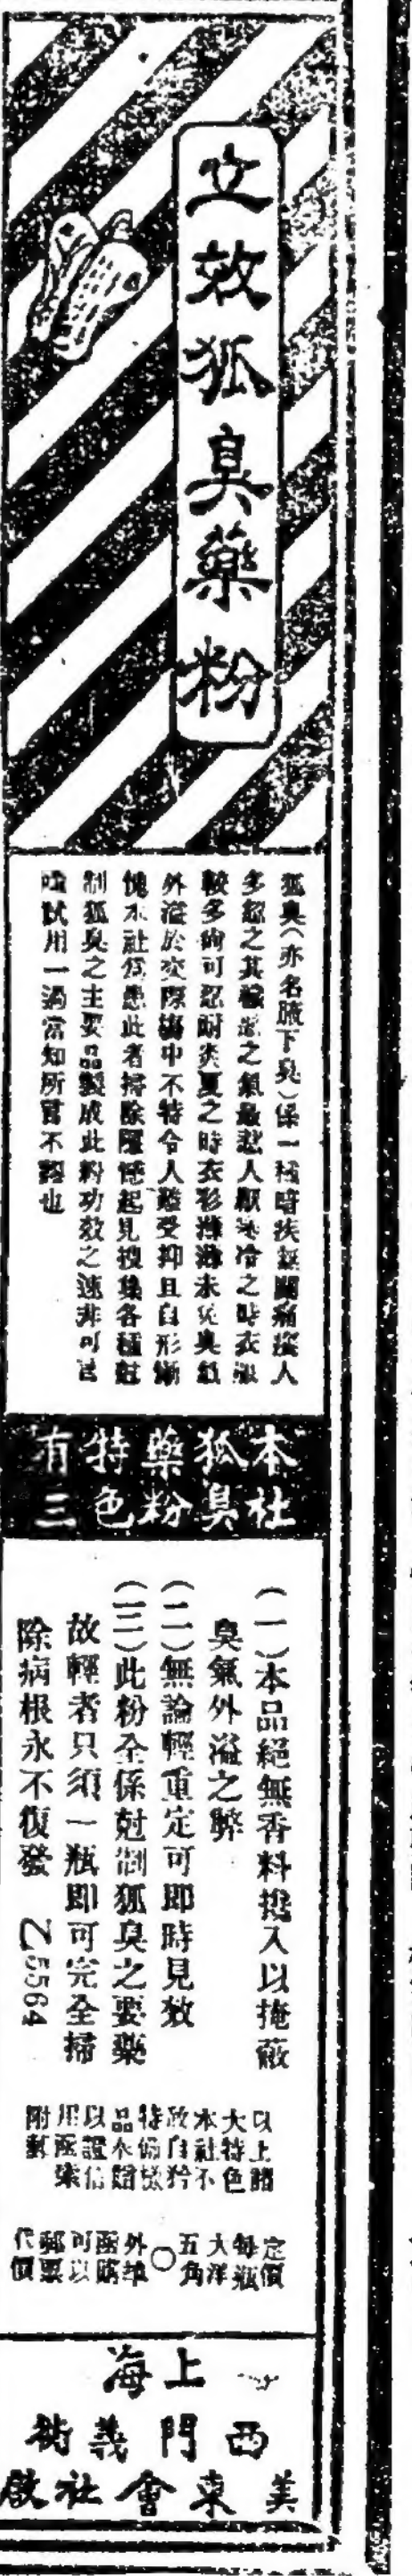 立效狐臭藥粉
狐臭(亦名腋下臭)係一種暗疾無關痛癢人
多忽之其穢惡之氣最惹人厭寒冷之時衣服
較多尚可忍耐炎夏之時衣衫摊摊未免臭氣
外溢於交際塲中不特令人難受抑且自形慚
愧本社爲患此者掃除隱憾起見搜集各種尅
制狐臭之主要品製成此粉功效之速非可言
喻試用一過當知所言不謬也
本社狐臭藥粉特色有三
(一)本品絕無香料攙入以掩蔽
臭氣外溢之弊
(二)無論輕重定可即時見效
(三)此粉全係尅制狐臭之要藥
故輕者只須一瓶即可完全掃
除病根永不復發 乙5564
以上諸
大特色
本社不
敢自矜
特備樣
品不賠
以證信
用函索
附郵
定價
每瓶
大洋
五角
〇
外埠
函購
可以
郵票
代價
上海
西門義街
美東會社啟